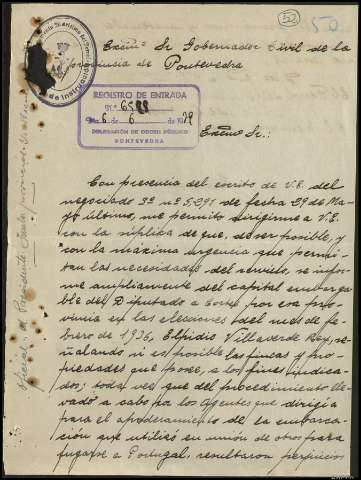 52
50
Excmº Sr Gobernador Civil de la
provincia de Pontevedra
REGISTRO DE ENTRADA
Nº 6588
Día 6 de 6 de 19
DELEGACIÓN DE ORDEN PÚBLICO
PONTEVEDRA
Excmo Sr.:
Con presencia del escrito de V.E. del
negociado 3º nº 5.291 de fecha 29 de Ma-
yo último, me permito dirigirme a V.E.
con la súplica de que, de ser posible, y
con la máxima urgencia que permi-
tan las necesidades del servicio, se infor-
me ampliamente del capital embarga-
ble del Diputado a Cortes, por esa pro-
vincia en las elecciones del mes de fe-
brero de 1936, Elpidio Villaverde Rey, se-
ñalando, si es posible las fincas y pro-
piedades que posee, a los fines indica-
dos; toda vez que del procedimiento lle-
vado a cabo por los Agentes que dirigía
para el apoderamiento de la embarca-
ción que utilizó en unión de otros para
fugarse a Portugal, resultaron perjuicios